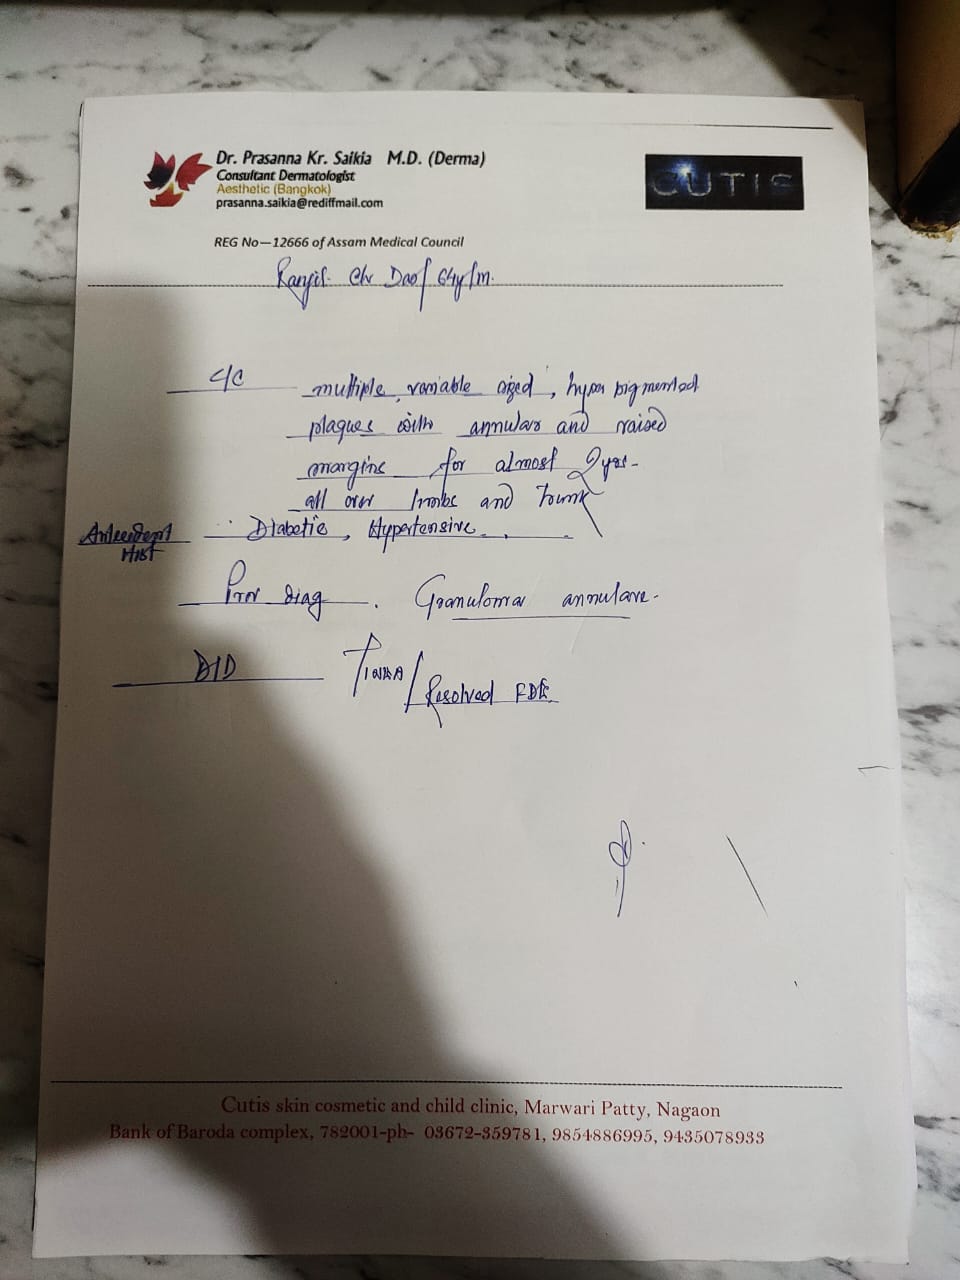 Dr. Prasanna Kr. Saikia M.D. (Derma)
Consultant Dermatologist
Aesthetic (Bangkok)
prasanna.saikia@rediffmail.com
CUTIS
REG No—12666 of Assam Medical Council
Ranjit Ch Das/ 64y/m.
C/C multiple, variable sized, hyper pigmented
plaques with annular and raised
margins for almost 2yrs-
all over limbs and trunk
Antecedent Diabetic, Hypertensive
Hist
Prov diag. Granuloma annulare.
D/D Tinea/ Resolved FDE.
Cutis skin cosmetic and child clinic, Marwari Patty, Nagaon
Bank of Baroda complex, 782001-ph- 03672-359781, 9854886995, 9435078933